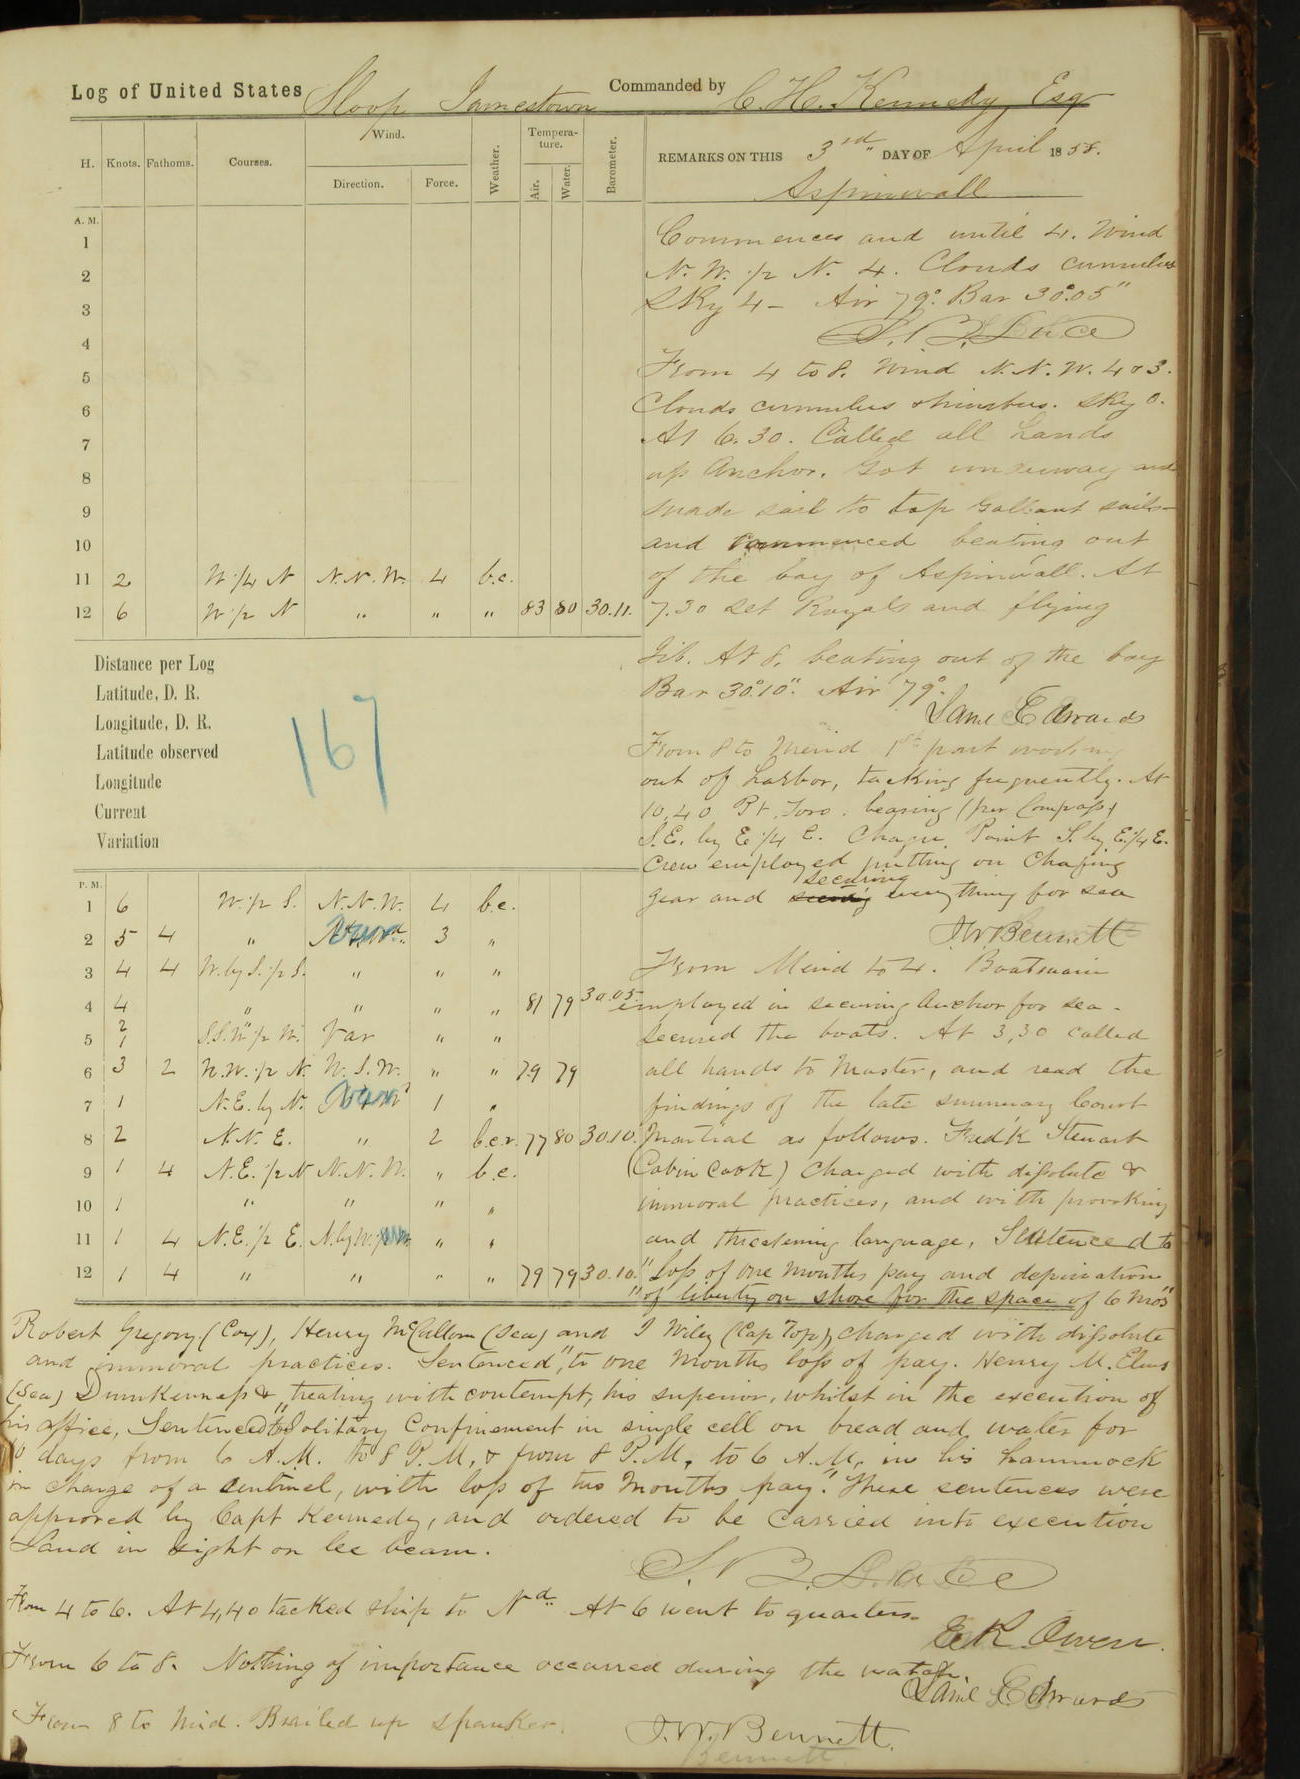 Log of United States Sloop Jamestown Commanded by C. H. Kennedy Esq
H. Knots. Fathoms. Courses. Wind. Direction. Force. Weather. Tempera-ture. Air. Water. Barometer.
REMARKS ON THIS 3rd DAY OF April 1858.
Aspinwall
A. M.
1
2
3
4
5
6
7
8
9
10
11 2 W 1/4 N N.N.W. 4 b.c.
12 6 W 1/2 N " " " 83 80 30.11.
Commences and until 4. Wind
N. W. 1/2 N. 4. Clouds cumulus
Sky 4 - Air 79° Bar 30.05"
S. B. Luce
From 4 to 8. Wind N. N. W. 4 & 3.
Clouds cumulus & nimbus. Sky 0.
At 6.30. Called all hands
up Anchor. Got underway and
made sail to top Gallant sails
and commenced beating out
of the bay of Aspinwall. At
7.30 Set Royals and flying
Jib. At 8. beating out of the bay
Bar 30.10". Air 79°.
Saml Edwards
From 8 to Merid 1st part working
out of harbor, tacking frequently. At
10.40 Pt. Toro. bearing (per Compass)
S.E. by E 1/4 E. Point S. by E. 1/4 E.
Crew employed putting on Chafing
gear and securing everything for sea
J. W. Bennett
Distance per Log
Latitude, D. R.
Longitude, D. R.
Latitude observed
Longitude
Current
Variation
167
P. M.
1 6 W 1/2 S. N.N.W. 4 b.c.
2 5 4 " 3 "
3 4 4 W. by S. 1/2 S. " " "
4 4 " " " " 81 79 30.05
5 2 S.S.W 1/2 W. Var " "
6 3 2 N.W. 1/2 N. W.S.W. " " 79 79
7 1 N.E. by N. 1 "
8 2 N.N.E. " 2 b.c.r. 77 80 30.10.
9 1 4 N.E. 1/2 N N.N.W. " b.c.
10 1 " " " "
11 1 4 N.E. 1/2 E. N. by W. " "
12 1 4 " " " " 79 79 30.10.
From Merid to 4. Boatswain
employed in securing Anchor for sea -
secured the boats. At 3,30 called
all hands to Muster, and read the
findings of the late summary Court
Martial as follows. Fredk Steuart
(Cabin Cook) charged with dissolute &
immoral practices, and with provoking
and threatening language, Sentenced to
"loss of one Months pay and deprivation
"of liberty on shore for the space of 6 Mos"
Robert Gregory, (Cox), Henry McCallom (Sea) and J Wiley (Cap Top), charged with dissolute
and immoral practices. Sentenced, "to one Months loss of pay. Henry M. Elms
(Sea) Drunkenness & "treating with contempt, his superior, whilst in the execution of
his office, Sentenced to Solitary Confinement in single cell on bread and water for
days from 6 A.M. to 8 P.M, & from 8 P.M, to 6 A.M, in his hammock
in charge of a sentinel, with loss of two Months pay." These sentences were
approved by Capt Kennedy, and ordered to be carried into execution
Land in sight on lee beam.
S. B. Luce
From 4 to 6. At 4,40 tacked ship to Nd. At 6 went to quarters.
E K Owen.
From 6 to 8. Nothing of importance occurred during the watch.
Saml Edwards
From 8 to Mid. Brailed up spanker.
J. W. Bennett.
Bennett